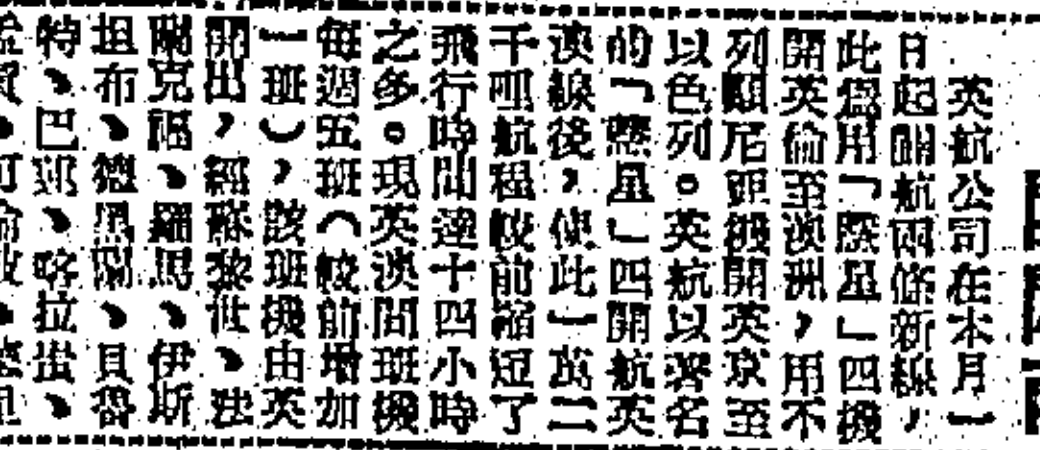 英航公司在本月一
日起開航兩條新線，
此為用「慧星」四機
開英倫至澳洲，用不
列顛尼距機開英京至
以色列。英航以著名
的「慧星」四開航英
澳線後，使此一萬二
千哩航程較前縮短了
飛行時間達十四小時
之多。現英澳間班機
每週五班（較前增加
一班），該班機由英
開出，經蘇黎世、法
蘭克福、羅馬、伊斯
坦布、德黑蘭、貝魯
特、巴邓、喀拉蚩、
孟買、